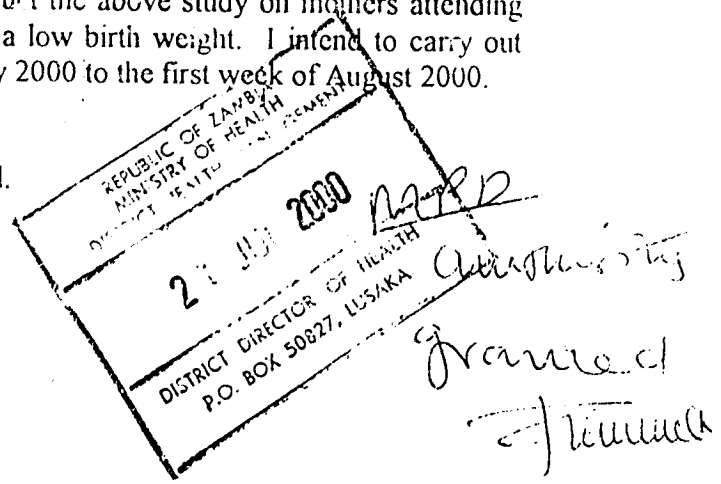 the above study on mothers attending
a low birth weight. I intend to carry out
2000 to the first week of August 2000.
REPUBLIC OF ZAMBIA
MINISTRY OF HEALTH
DISTRICT HEALTH
2 2000
DISTRICT DIRECTOR OF HEALTH
P.O. BOX 50827, LUSAKA
granted